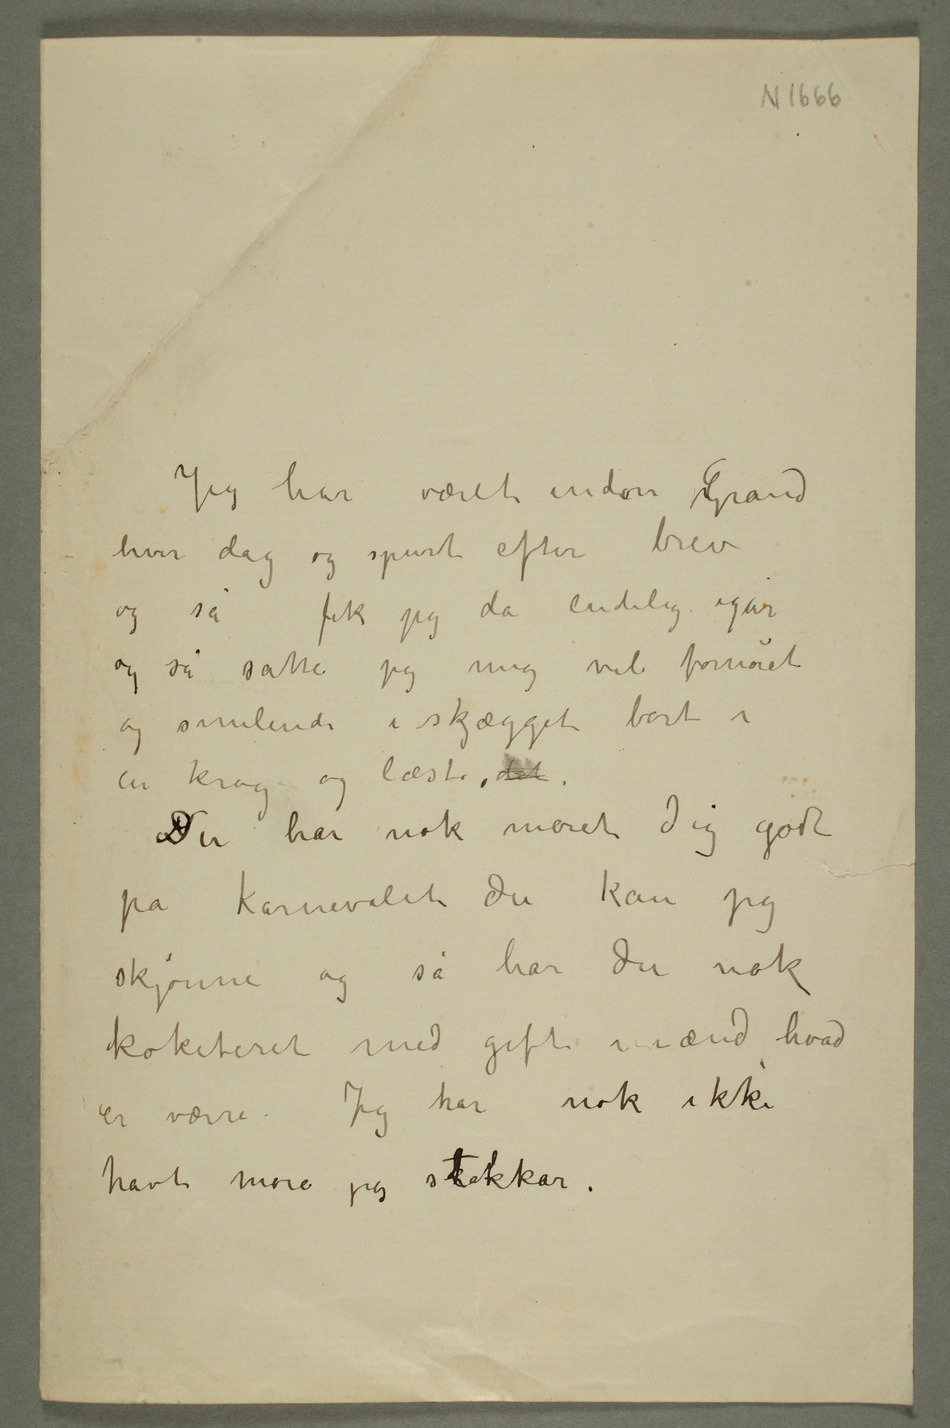 N 1666
Jeg har været indom Grand
hver dag og spurt efter brev
og så fik jeg da endelig igår
og så satte jeg mig vel fornøiet
og smilende i skjægget bort i
en krog og læste det.
Du har nok moret dig godt
på karnevalet du kan jeg
skjønne og så har du nok
koketeret med gifte mænd hvad
er værre. Jeg har nok ikke
havt moro jeg stakkar.